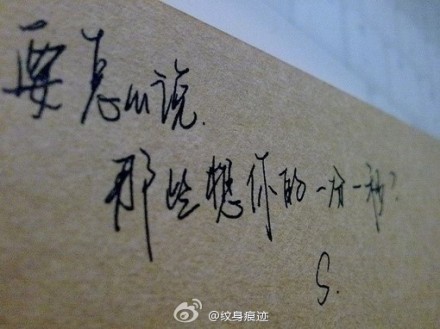 要怎么说.
那些想你的一分一秒?
S.
@纹身痕迹